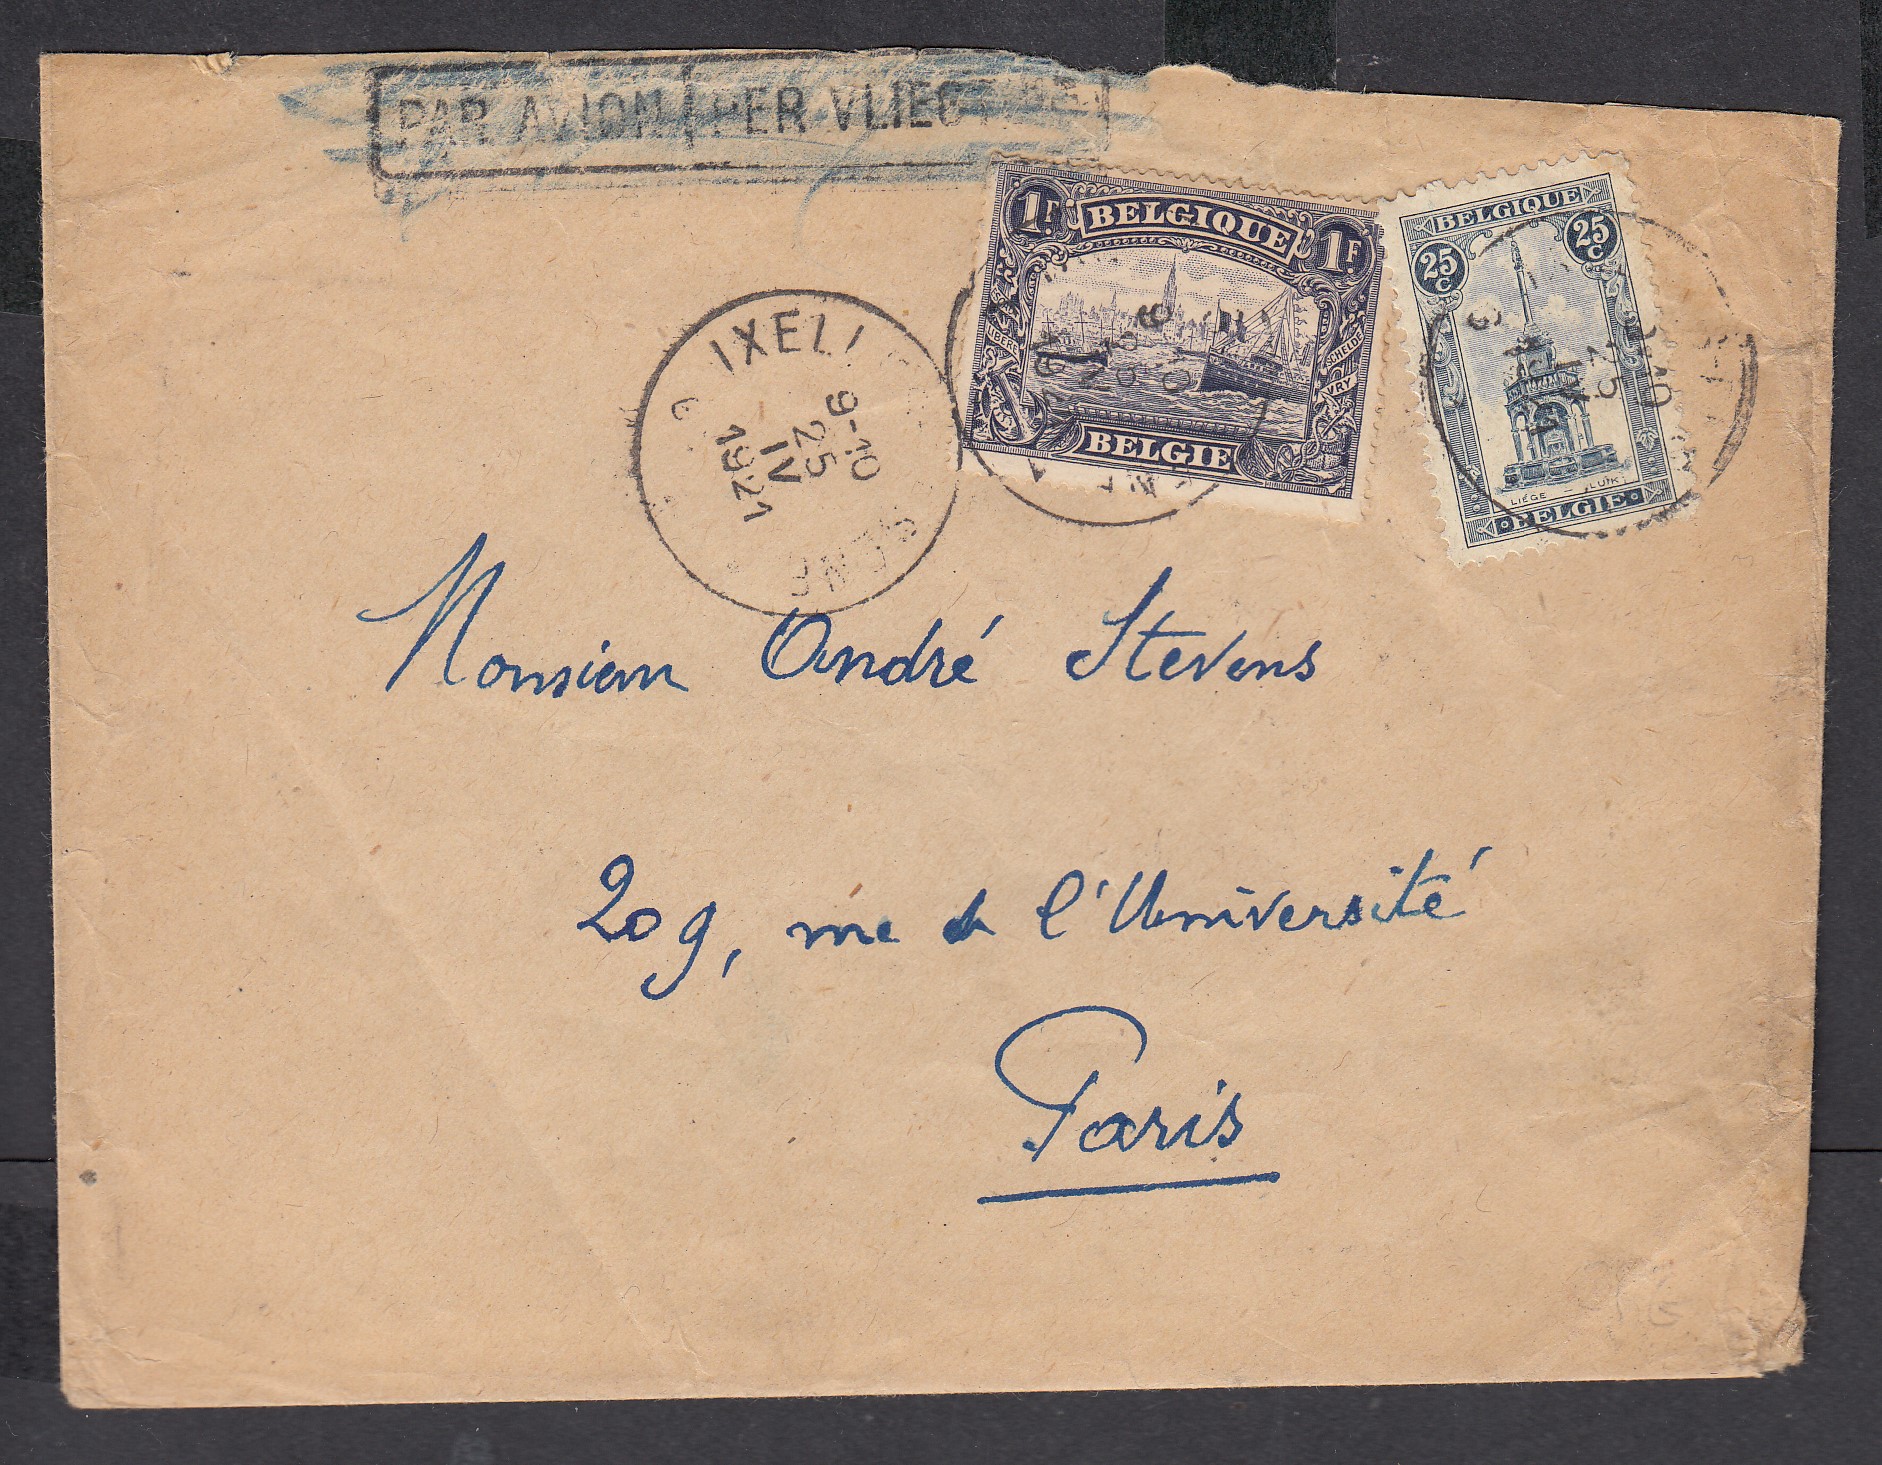 PAR AVION PER VLIEGT
1F. BELGIQUE 1F.
LIBERE SCHELDE VRY
BELGIE
BELGIQUE
25 C 25 C
LIÉGE LUIK
BELGIE
IXEL
9-10
25
IV
1921
Monsieur André Stevens
209, rue de l'Université
Paris